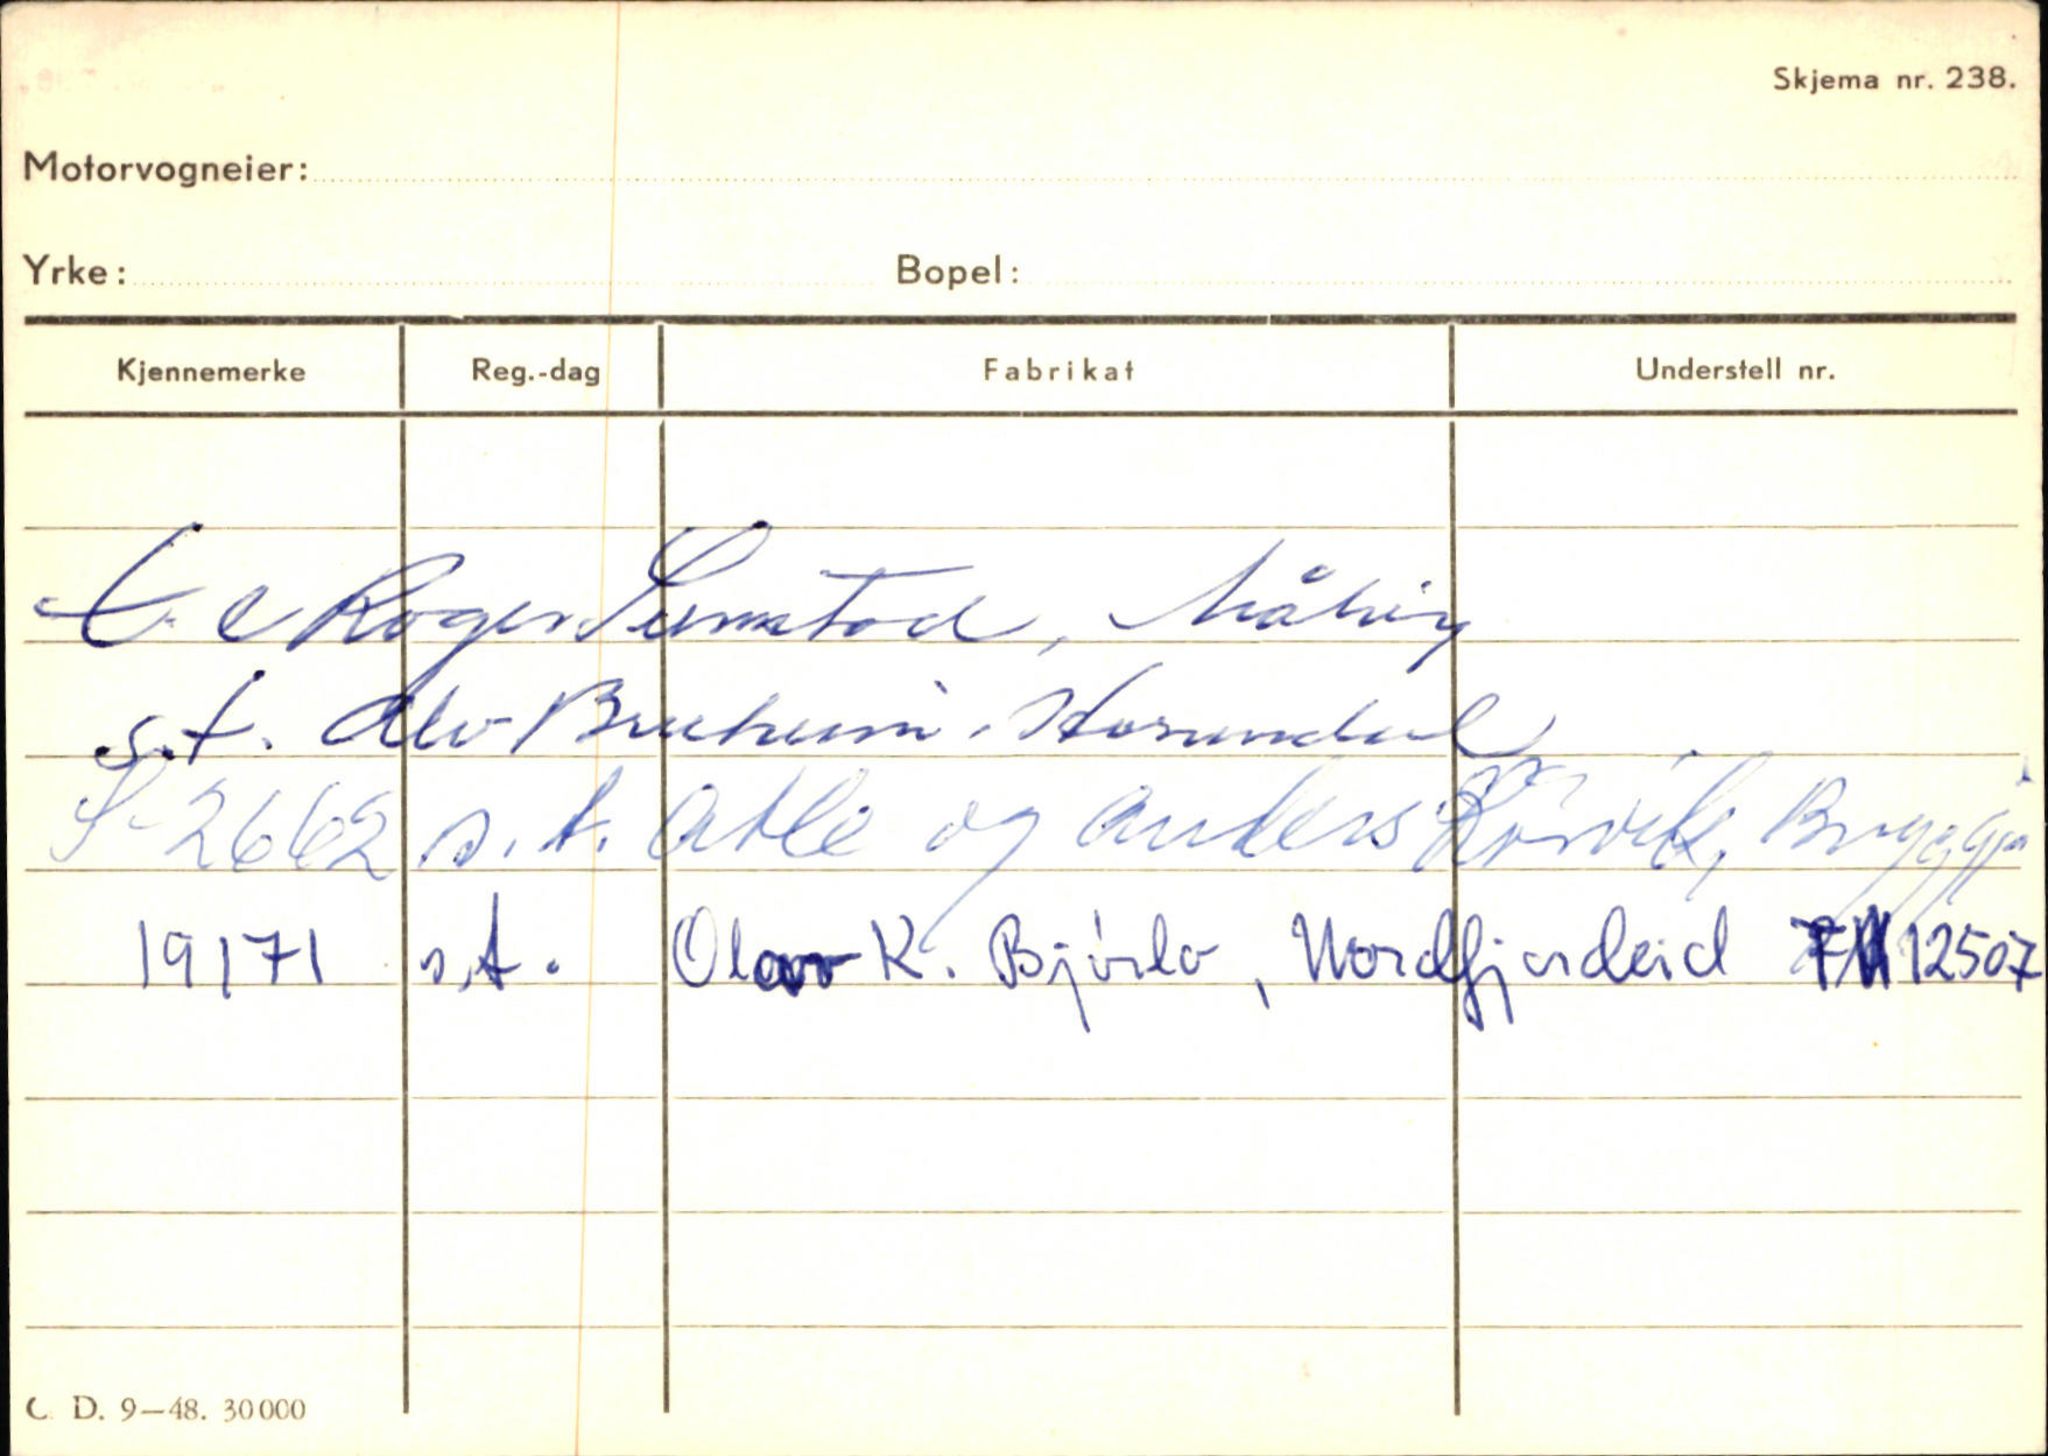 Skjema nr. 238.
Motorvogneier:
Yrke: Bopel:
Kjennemerke Reg.-dag Fabrikat Understell nr.
Roger
s.t. Alv
S-2662 s.t. Atle og Anders Rörvik, Bryggja
19/71 s.t. Olav K. Björlo, Nordfjordeid 12507
C. D. 9—48. 30000